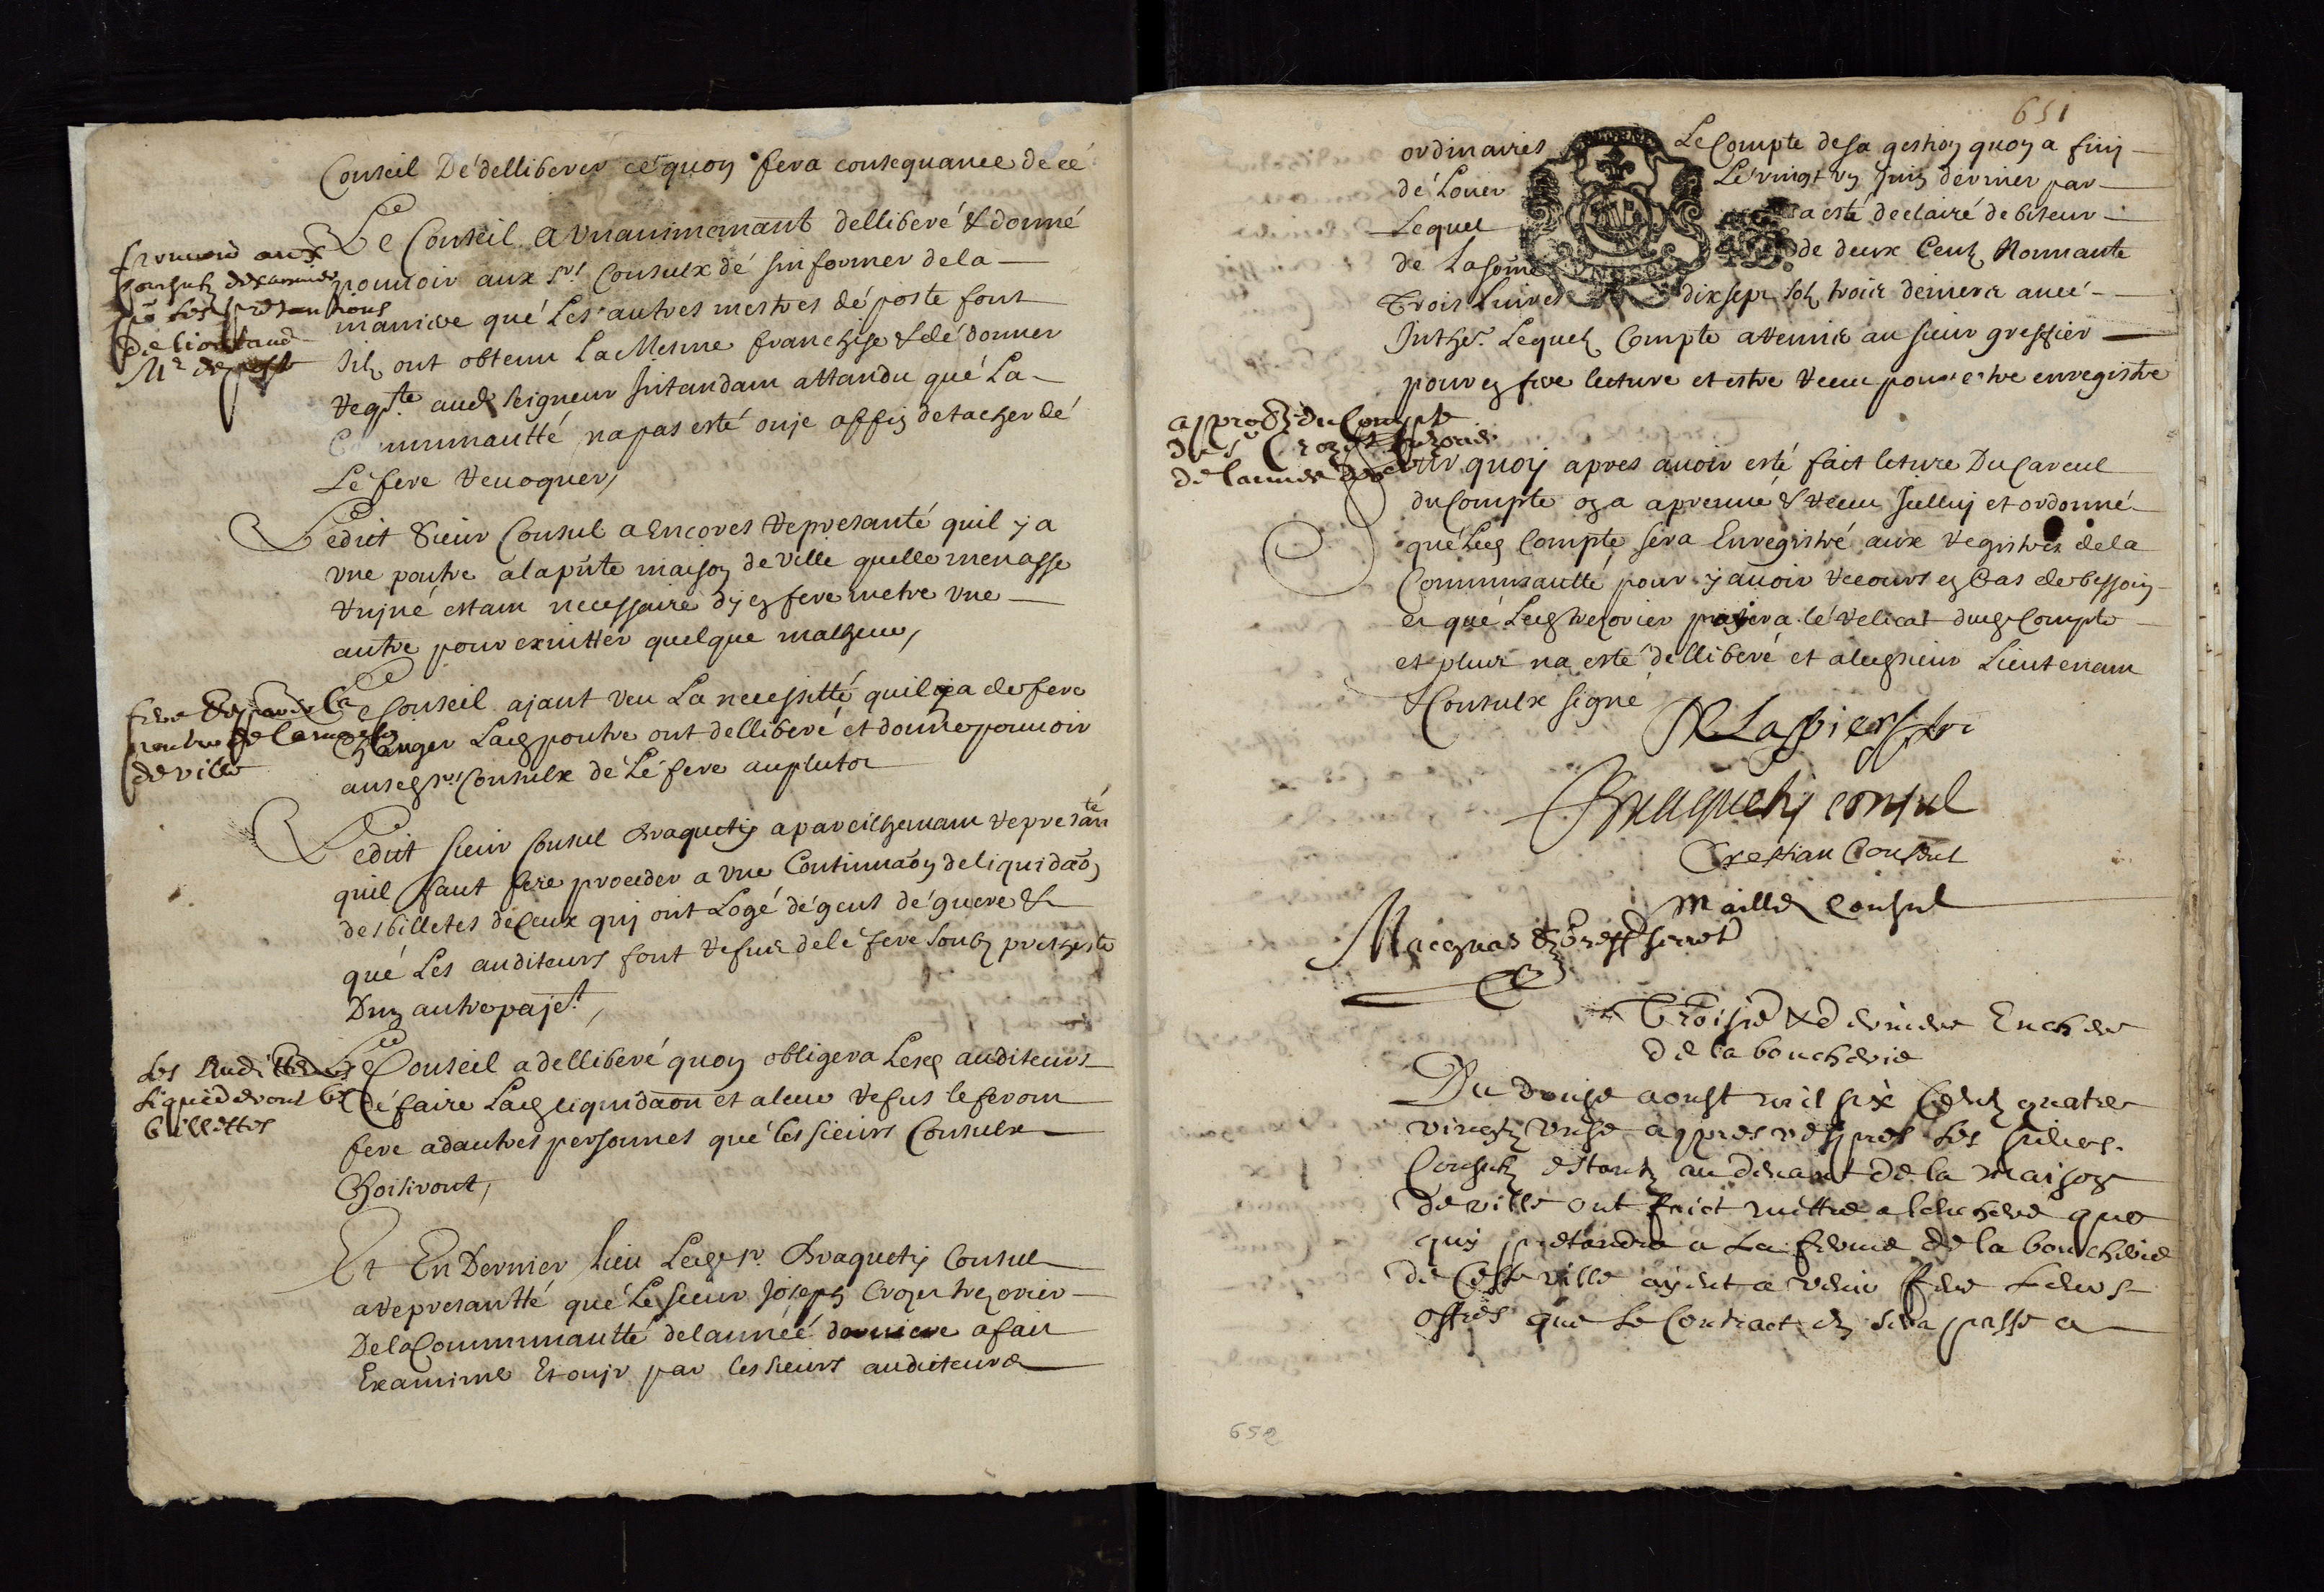 Conseil De delliberer ce quon fera consequance de ce
Le Conseil a vnanimemant delliberé & donné
pouuoir aux srs Consulx dé sinformer de la
maniere qué Les autres mestres dé poste font
silz ont obtenu La Mesme franchise & dé donner
reqte. aud seigneur Intandam attandu qué La
Communautté na pas esté ouje affin de tacher dé
Lé fere reuoquer,
pouuoir aux
consulz dexaminer
les pretantions
de liontaud
Mr de poste
Ledit Sieur Consul a Encores represanté quil y a
vne poutre a la pnte maison de ville quelle menasse
rujné estam necessaire dy en fere metre vne
autre pour exuitter quelque malheur,
Le Conseil ajant veu La necessitté quil y a de fere
changer Lad poutre ont delliberé et donné pouuoir
ausd srs Consulx dé Lé fere au plutot
fere reparer la
poutre de la maison
de ville
Ledit sieur Consul Braquety a pareilhemam represanté
quil faut fere proceder a vne Continuaon de liquidaon
des billetes de Ceux quy ont Logé dé gens dé guere &
qué Les auditeurs font refus de lé fere soubz prethexte
Dun autre paje.t,
Le Conseil a delliberé quon obligera Lesd auditeurs
dé faire Lad liquidaon et a leur refus le feront
fere a dautres personnes qué les sieurs Consulx
Choisiront,
Les Auditteurs
liquideront les
billettes
Et En Dernier lieu Led sr. Braquety Consul
a represantté qué Le sieur Joseph Crozet trezorier
De la Communautté de lannéé derniere a fait
Examiné Et oujr par les sieurs auditeurs
651
ordinaires Le Compte de sa gestion quon a finy
dé Louer Lé vingt vn Juin dernier par
Lequel a esté declairé debiteur
de La some de deux Centz Nonnante
Trois Liures dix sept solz trois deniers auec
Inthe.r Lequel Compte a remis au sieur greffier
pour en fere lecture et estre receu pour estre enregistré
approb.on du Compte
du sr Crozet trezorier
de lannee
Sur quoy apres auoir esté fait leture Du Careul
du Compte on a aprenué & receu Jcelluy et ordonné
qué Led Compte sera Enregistré aux registres de la
Communautté pour y auoir recours en Cas de bessoin
et qué Led trezorier payera lé relicat dud Compte
et plus na esté delliberé et a led sieur Lieutenam
& Consulx signé
Braquety consul
Crestian Consul
Maille Consul
Troisie & derniere Enchere
de la boucherie
Du douze aoust mil six Centz quatre
vingtz vnse appres vespres Les sieurs
Consulz estantz au deuant de la maison
de ville ont faict mettre a lenchere que
quy pretandra a La ferme de la boucherie
de Ceste ville ayent a venir fere Leurs
offres que Le Contract en sera passe a
652